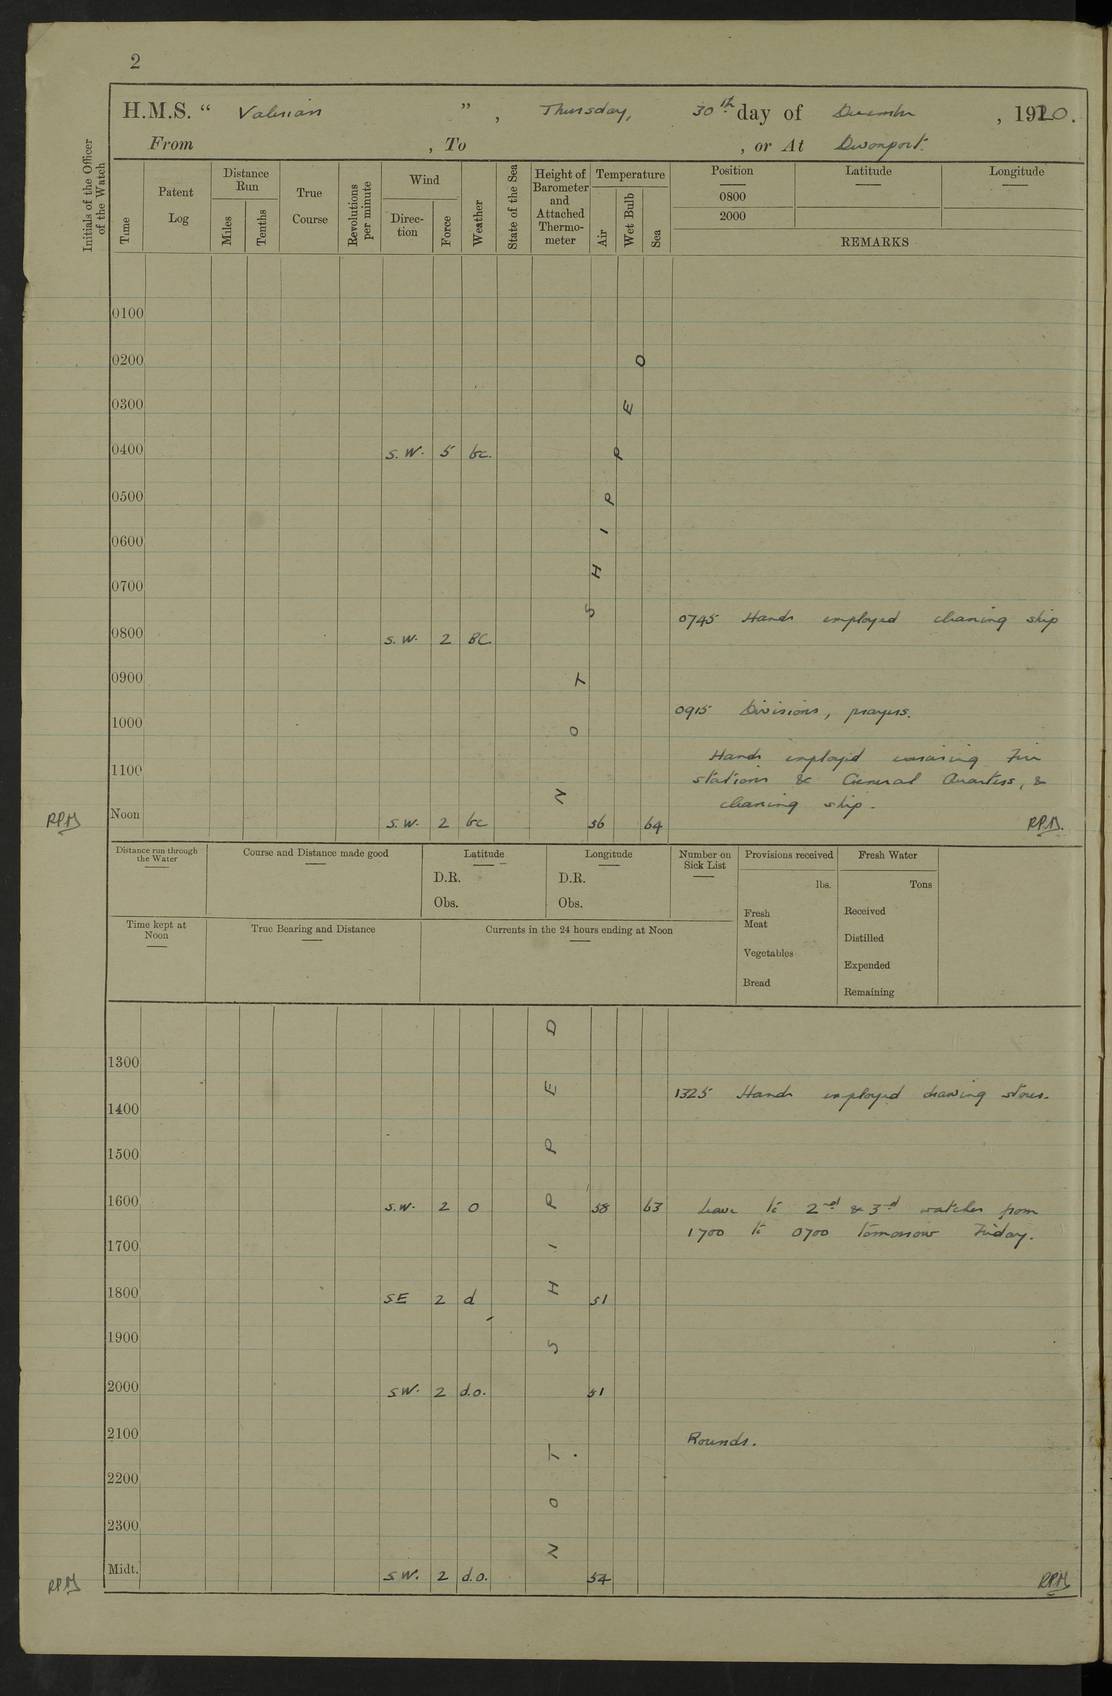 2
H.M.S. “ Valerian ”, Thursday, 30th day of December, 1920.
From , To , or At Devonport.
Initials of the Officer of the Watch
Time
Patent Log
Distance Run
Miles
Tenths
True Course
Revolutions per minute
Wind
Direc-tion
Force
Weather
State of the Sea
Height of Barometer and Attached Thermo-meter
Temperature
Air
Wet Bulb
Sea
Position
0800
2000
Latitude
Longitude
REMARKS
0100
0200
0300
0400 S.W. 5 bc.
0500
0600
0700
0745 Hands employed cleaning ship
0800 S.W. 2 BC.
0900
0915 Divisions, prayers.
1000
Hands employed exercising Fire
1100 stations & General Quarters, &
cleaning ship.
NOT SHIPPED
RPM Noon S.W. 2 bc 56 64 RPM.
Distance run through the Water
Course and Distance made good
Latitude
D.R.
Obs.
Longitude
D.R.
Obs.
Number on Sick List
Provisions received
lbs.
Fresh Meat
Vegetables
Bread
Fresh Water
Tons
Received
Distilled
Expended
Remaining
Time kept at Noon
True Bearing and Distance
Currents in the 24 hours ending at Noon
NOT SHIPPED
1300
1325 Hands employed drawing stores.
1400
1500
1600 S.W. 2 O 58 63 Leave to 2nd & 3rd watches from
1700 to 0700 tomorrow Friday.
1700
1800 SE 2 d 51
1900
2000 SW. 2 d.o. 51
2100 Rounds.
2200
2300
RPM Midt. SW. 2 d.o. 54 RPM